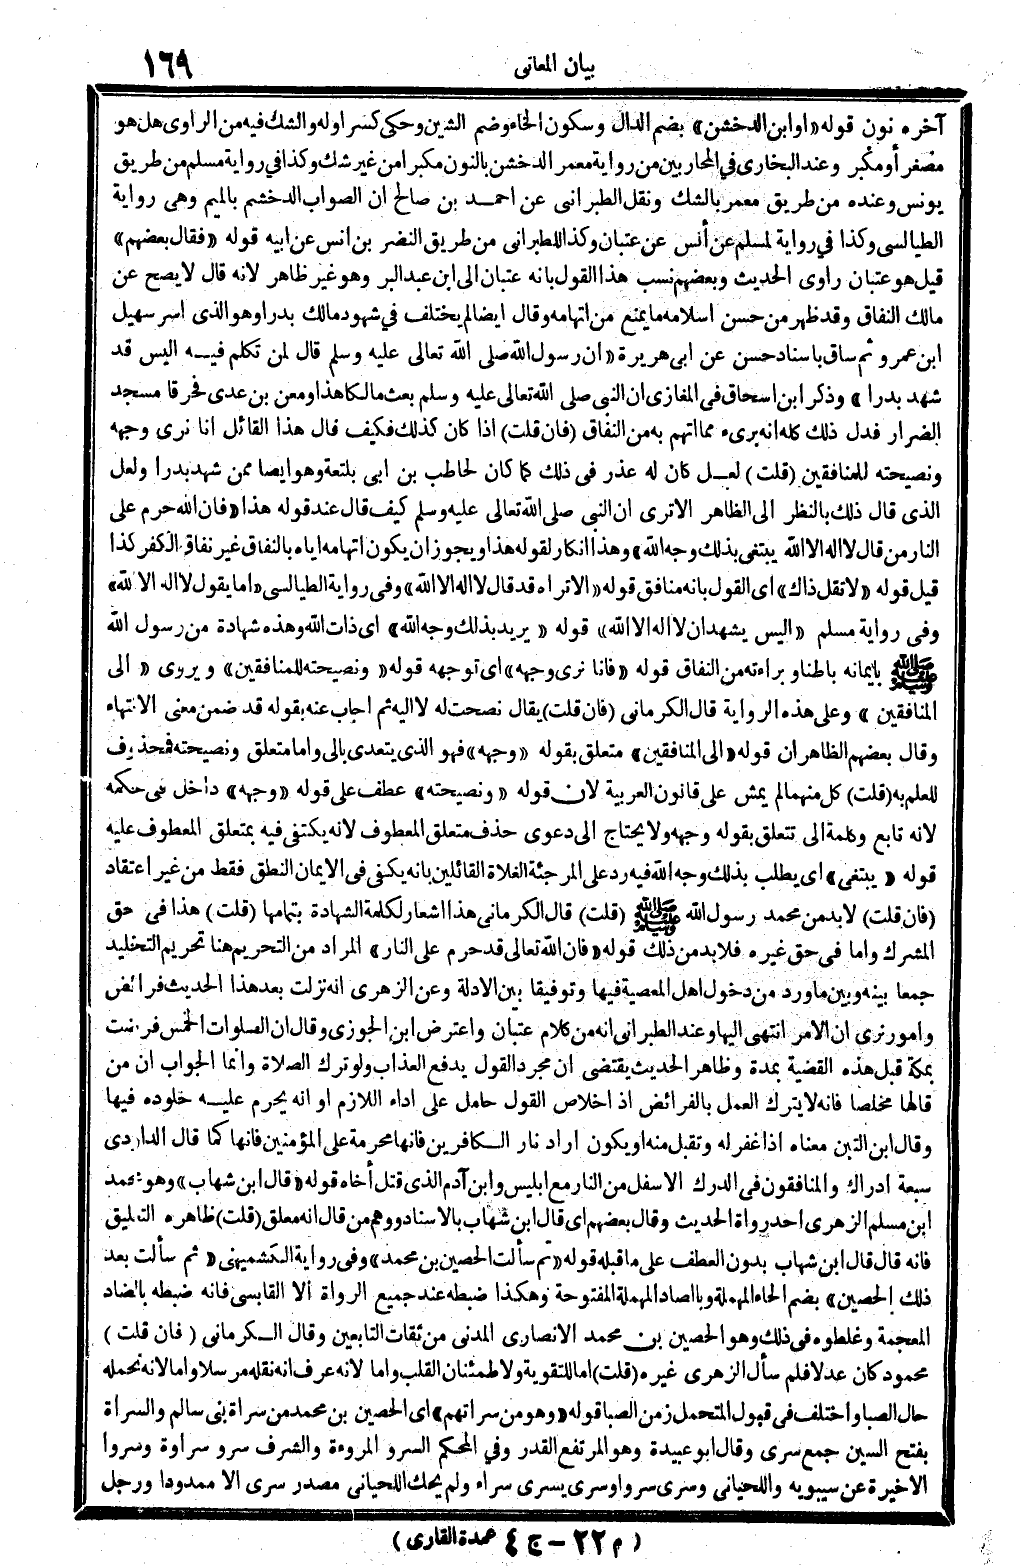 بيان المعانى ١٦٩
آخره نون قوله «او ابن الدخشن» بضم الدال وسكون الخاء وضم الشين وحكى كسر اوله والشك فيه من الراوى هل هو
مصغر أو مكبر وعند البخارى في المحاربين من رواية معمر الدخشن بالنون مكبرا من غير شك وكذا في رواية مسلم من طريق
يونس وعنده من طريق معمر بالشك ونقل الطبرانى عن احمد بن صالح ان الصواب الدخشم بالميم وهى رواية
الطيالسى وكذا في رواية لمسلم عن أنس عن عتبان وكذا للطبرانى من طريق النضر بن انس عن ابيه قوله «فقال بعضهم»
قيل هو عتبان راوى الحديث وبعضهم نسب هذا القول بانه عتبان الى ابن عبد البر وهو غير ظاهر لانه قال لا يصح عن
مالك النفاق وقد ظهر من حسن اسلامه ما يمنع من اتهامه وقال ايضا لم يختلف في شهود مالك بدرا وهو الذى اسر سهيل
ابن عمرو ثم ساق باسناد حسن عن ابى هريرة «ان رسول الله صلى الله تعالى عليه وسلم قال لمن تكلم فيه اليس قد
شهد بدرا» وذكر ابن اسحاق في المغازى ان النبى صلى الله تعالى عليه وسلم بعث مالكا هذا ومعن بن عدى فحرقا مسجد
الضرار فدل ذلك كله انه برىء مما اتهم به من النفاق (فان قلت) اذا كان كذلك فكيف قال هذا القائل انا نرى وجهه
ونصيحته للمنافقين (قلت) لعل كان له عذر فى ذلك كما كان لحاطب بن ابى بلتعة وهو ايضا ممن شهد بدرا ولعل
الذى قال ذلك بالنظر الى الظاهر الا ترى ان النبى صلى الله تعالى عليه وسلم كيف قال عند قوله هذا «فان الله حرم على
النار من قال لا اله الا الله يبتغى بذلك وجه الله» وهذا انكار لقوله هذا ويجوز ان يكون اتهامه اياه بالنفاق غير نفاق الكفر كذا
قيل قوله «لا تقل ذاك» اى القول بانه منافق قوله «الا تراه قد قال لا اله الا الله» وفى رواية الطيالسى «اما يقول لا اله الا الله»
وفى رواية مسلم «اليس يشهد ان لا اله الا الله» قوله «يريد بذلك وجه الله» اى ذات الله وهذه شهادة من رسول الله
ﷺ بايمانه باطنا وبراءته من النفاق قوله «فانا نرى وجهه» اى توجهه قوله «ونصيحته للمنافقين» ويروى «الى
المنافقين» وعلى هذه الرواية قال الكرمانى (فان قلت) يقال نصحت له لا اليه ثم اجاب عنه بقوله قد ضمن معنى الانتهاء
وقال بعضهم الظاهر ان قوله «الى المنافقين» متعلق بقوله «وجهه» فهو الذى يتعدى بالى واما متعلق ونصيحته فمحذوف
للعلم به (قلت) كل منهما لم يمش على قانون العربية لان قوله «ونصيحته» عطف على قوله «وجهه» داخل فى حكمه
لانه تابع وكلمة الى تتعلق بقوله وجهه ولا يحتاج الى دعوى حذف متعلق المعطوف لانه يكتفى فيه بمتعلق المعطوف عليه
قوله «يبتغى» اى يطلب بذلك وجه الله فيه رد على المرجئة الغلاة القائلين بانه يكفى فى الايمان النطق فقط من غير اعتقاد
(فان قلت) لا بد من محمد رسول الله ﷺ (قلت) قال الكرمانى هذا اشعار لكلمة الشهادة بتمامها (قلت) هذا فى حق
المشرك واما فى حق غيره فلا بد من ذلك قوله «فان الله تعالى قد حرم على النار» المراد من التحريم هنا تحريم التخليد
جمعا بينه وبين ما ورد من دخول اهل المعصية فيها وتوفيقا بين الادلة وعن الزهرى انه نزلت بعد هذا الحديث فرائض
وامور نرى ان الامر انتهى اليها وعند الطبرانى انه من كلام عتبان واعترض ابن الجوزى وقال ان الصلوات الخمس فرضت
بمكة قبل هذه القضية بمدة وظاهر الحديث يقتضى ان مجرد القول يدفع العذاب ولو ترك الصلاة وانما الجواب ان من
قالها مخلصا فانه لا يترك العمل بالفرائض اذ اخلاص القول حامل على اداء اللازم او انه يحرم عليه خلوده فيها
وقال ابن التين معناه اذا غفر له وتقبل منه او يكون اراد نار الكافرين فانها محرمة على المؤمنين فانها كما قال الداودى
سبعة ادراك والمنافقون فى الدرك الاسفل من النار مع ابليس وابن آدم الذى قتل أخاه قوله «قال ابن شهاب» وهو محمد
ابن مسلم الزهرى احد رواة الحديث وقال بعضهم اى قال ابن شهاب بالاسناد ووهم من قال انه معلق (قلت) ظاهره التعليق
فانه قال قال ابن شهاب بدون العطف على ما قبله قوله «ثم سألت الحصين بن محمد» وفى رواية الكشميهنى «ثم سألت بعد
ذلك الحصين» بضم الحاء المهملة وبالصاد المهملة المفتوحة وهكذا ضبطه عند جميع الرواة الا القابسى فانه ضبطه بالضاد
المعجمة وغلطوه فى ذلك وهو الحصين بن محمد الانصارى المدنى من ثقات التابعين وقال الكرمانى (فان قلت)
محمود كان عدلا فلم سأل الزهرى غيره (قلت) اما للتقوية ولاطمئنان القلب واما لانه عرف انه نقله مرسلا واما لانه تحمله
حال الصبا واختلف فى قبول المتحمل زمن الصبا قوله «وهو من سراتهم» اى الحصين بن محمد من سراة بنى سالم والسراة
بفتح السين جمع سرى وقال ابو عبيدة وهو المرتفع القدر وفي المحكم السرو المروءة والشرف سرو سراوة وسروا
الاخيرة عن سيبويه واللحيانى وسرى سروا وسرى يسرى سراء ولم يحك اللحيانى مصدر سرى الا ممدودا ورجل
(م ٢٢ - ج ٤ عمدة القارى)